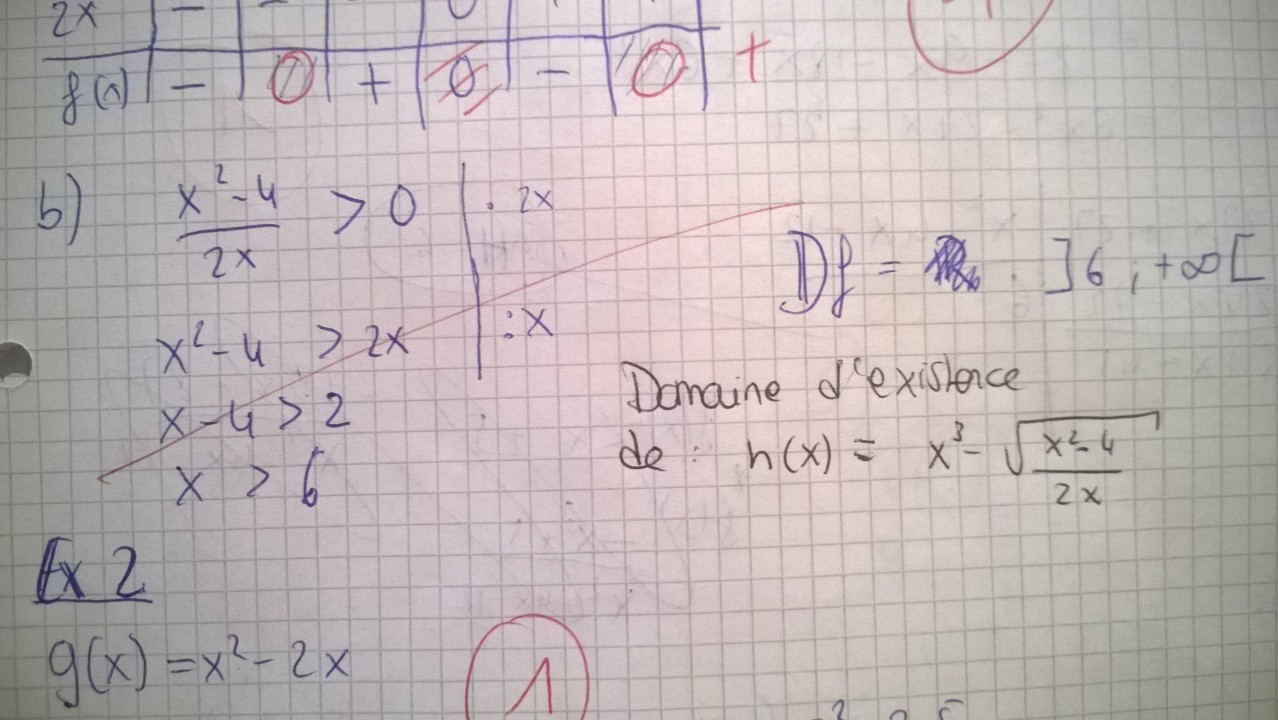 2x − − 0
f(x) − 0 + 0 − 0 +
b) x²-4 / 2x > 0 | · 2x
x²-4 > 2x | : x
x-4 > 2
x > 6
Df = ]6 ; +∞[
Domaine d'existence
de : h(x) = x³ - √((x²-4)/2x)
Ex 2
g(x) = x² - 2x
1